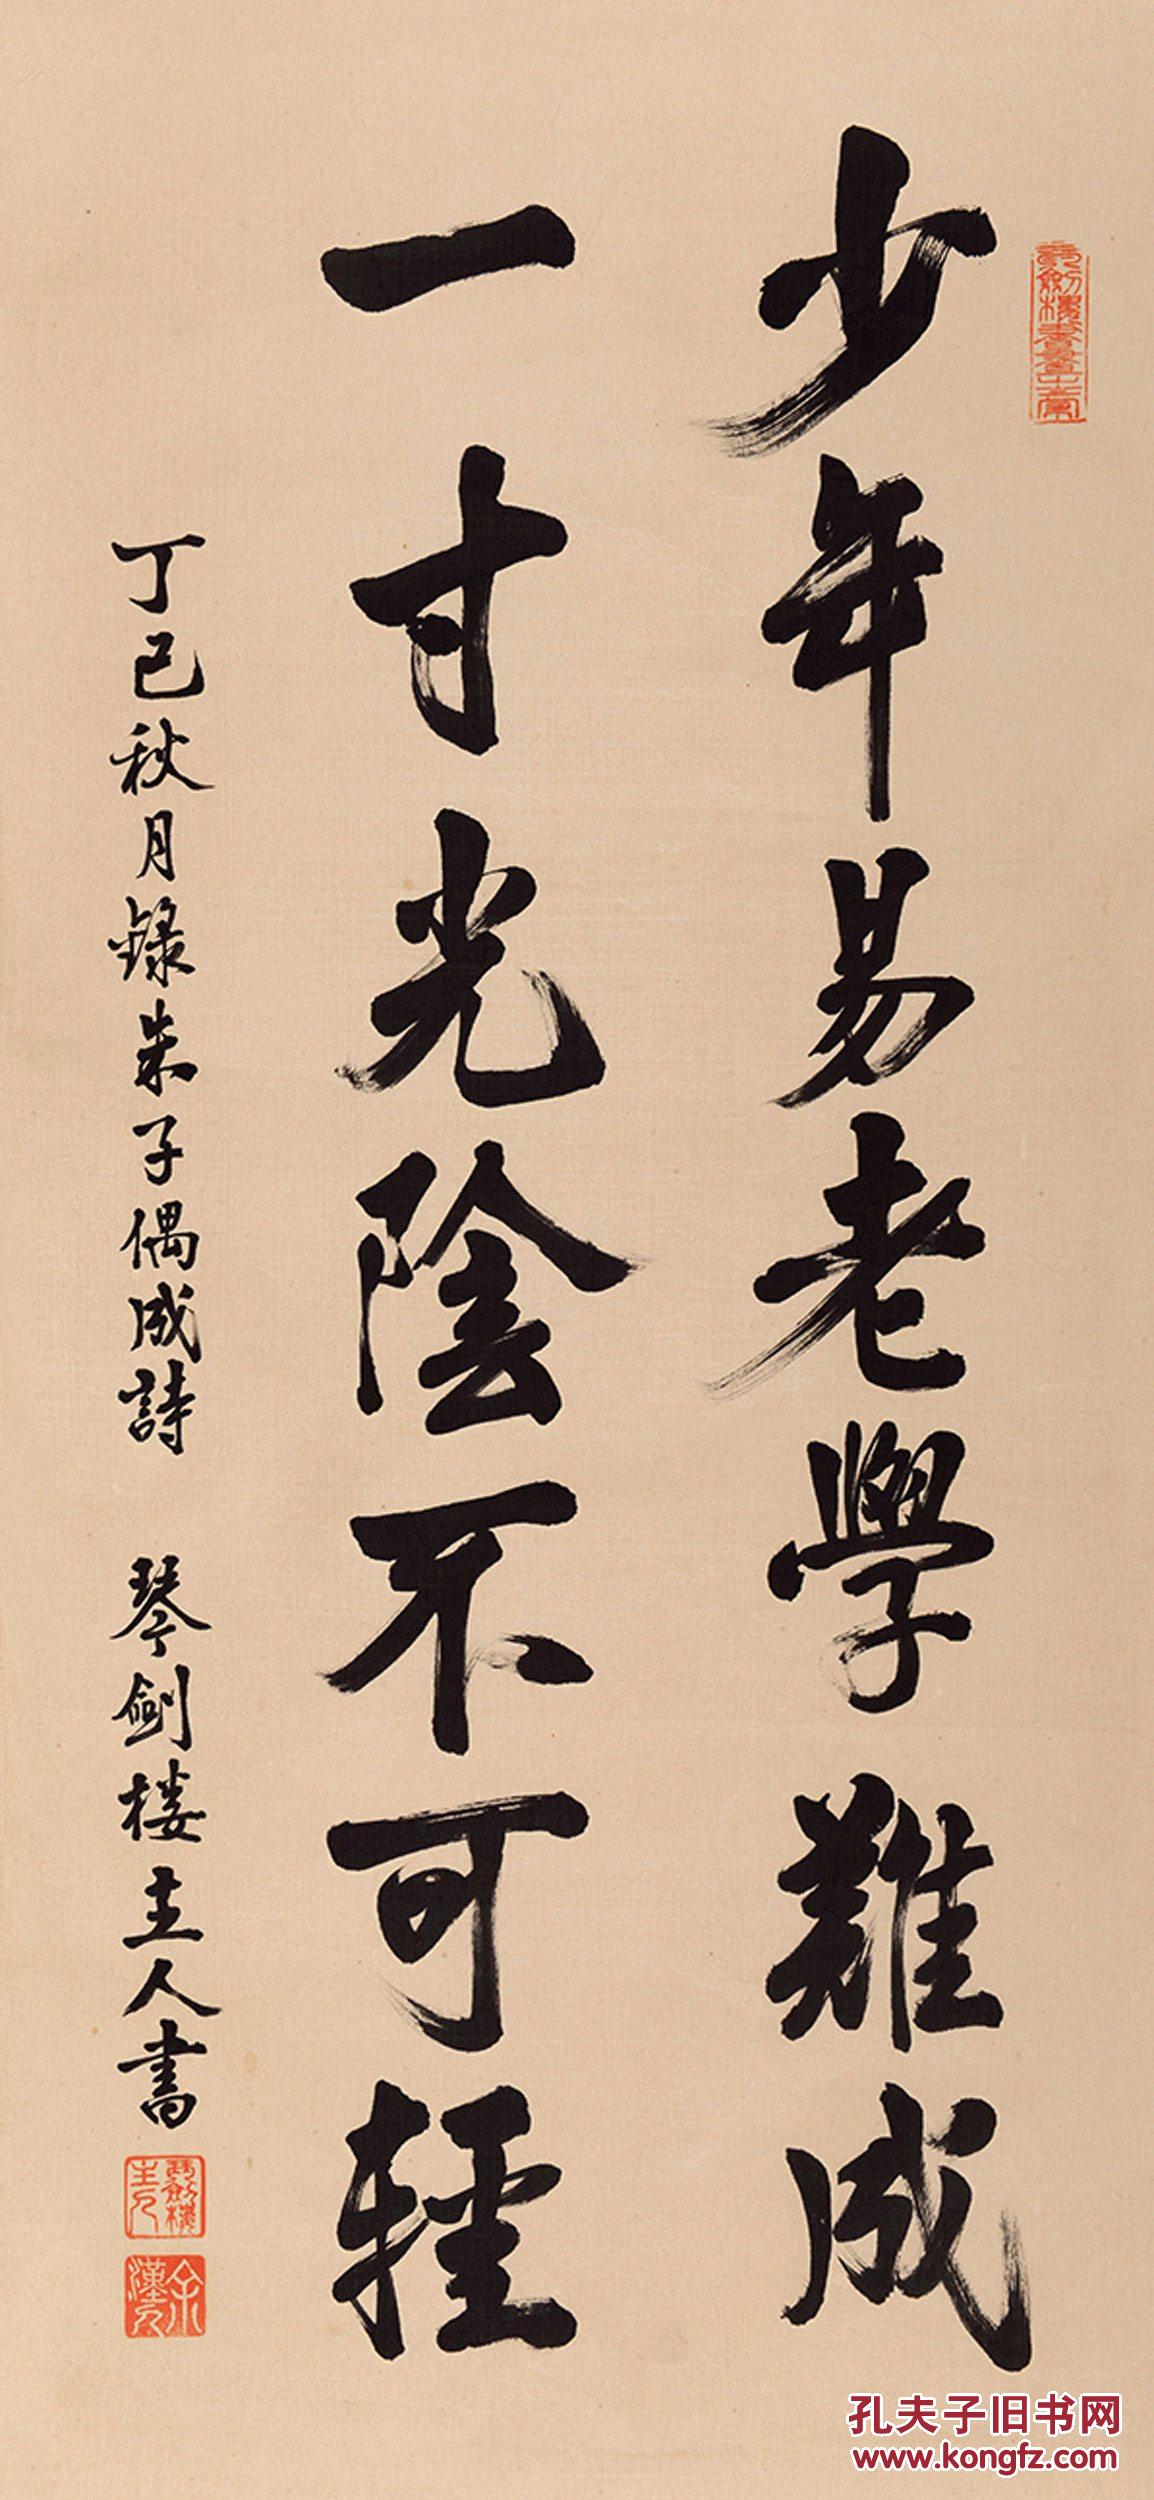 少年易老學難成
一寸光陰不可輕
丁巳秋月錄朱子偶成詩 琴劍楼主人書
孔夫子旧书网
www.kongfz.com